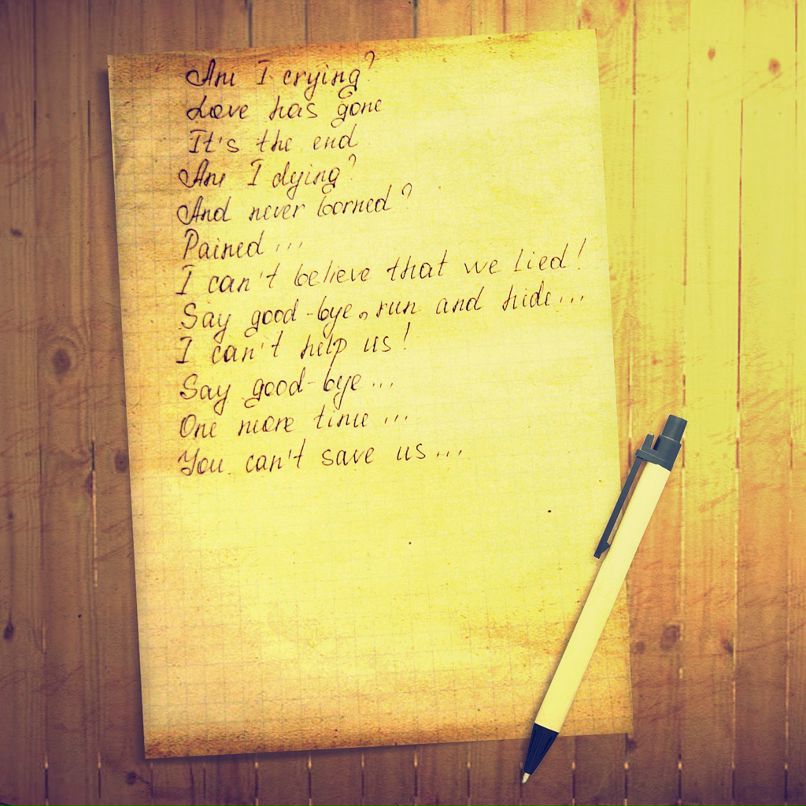 Am I crying?
Love has gone
It's the end
Am I dying?
And never borned?
Pained...
I can't believe that we lied!
Say good-bye, run and hide...
I can't help us!
Say good-bye...
One more time...
You can't save us...